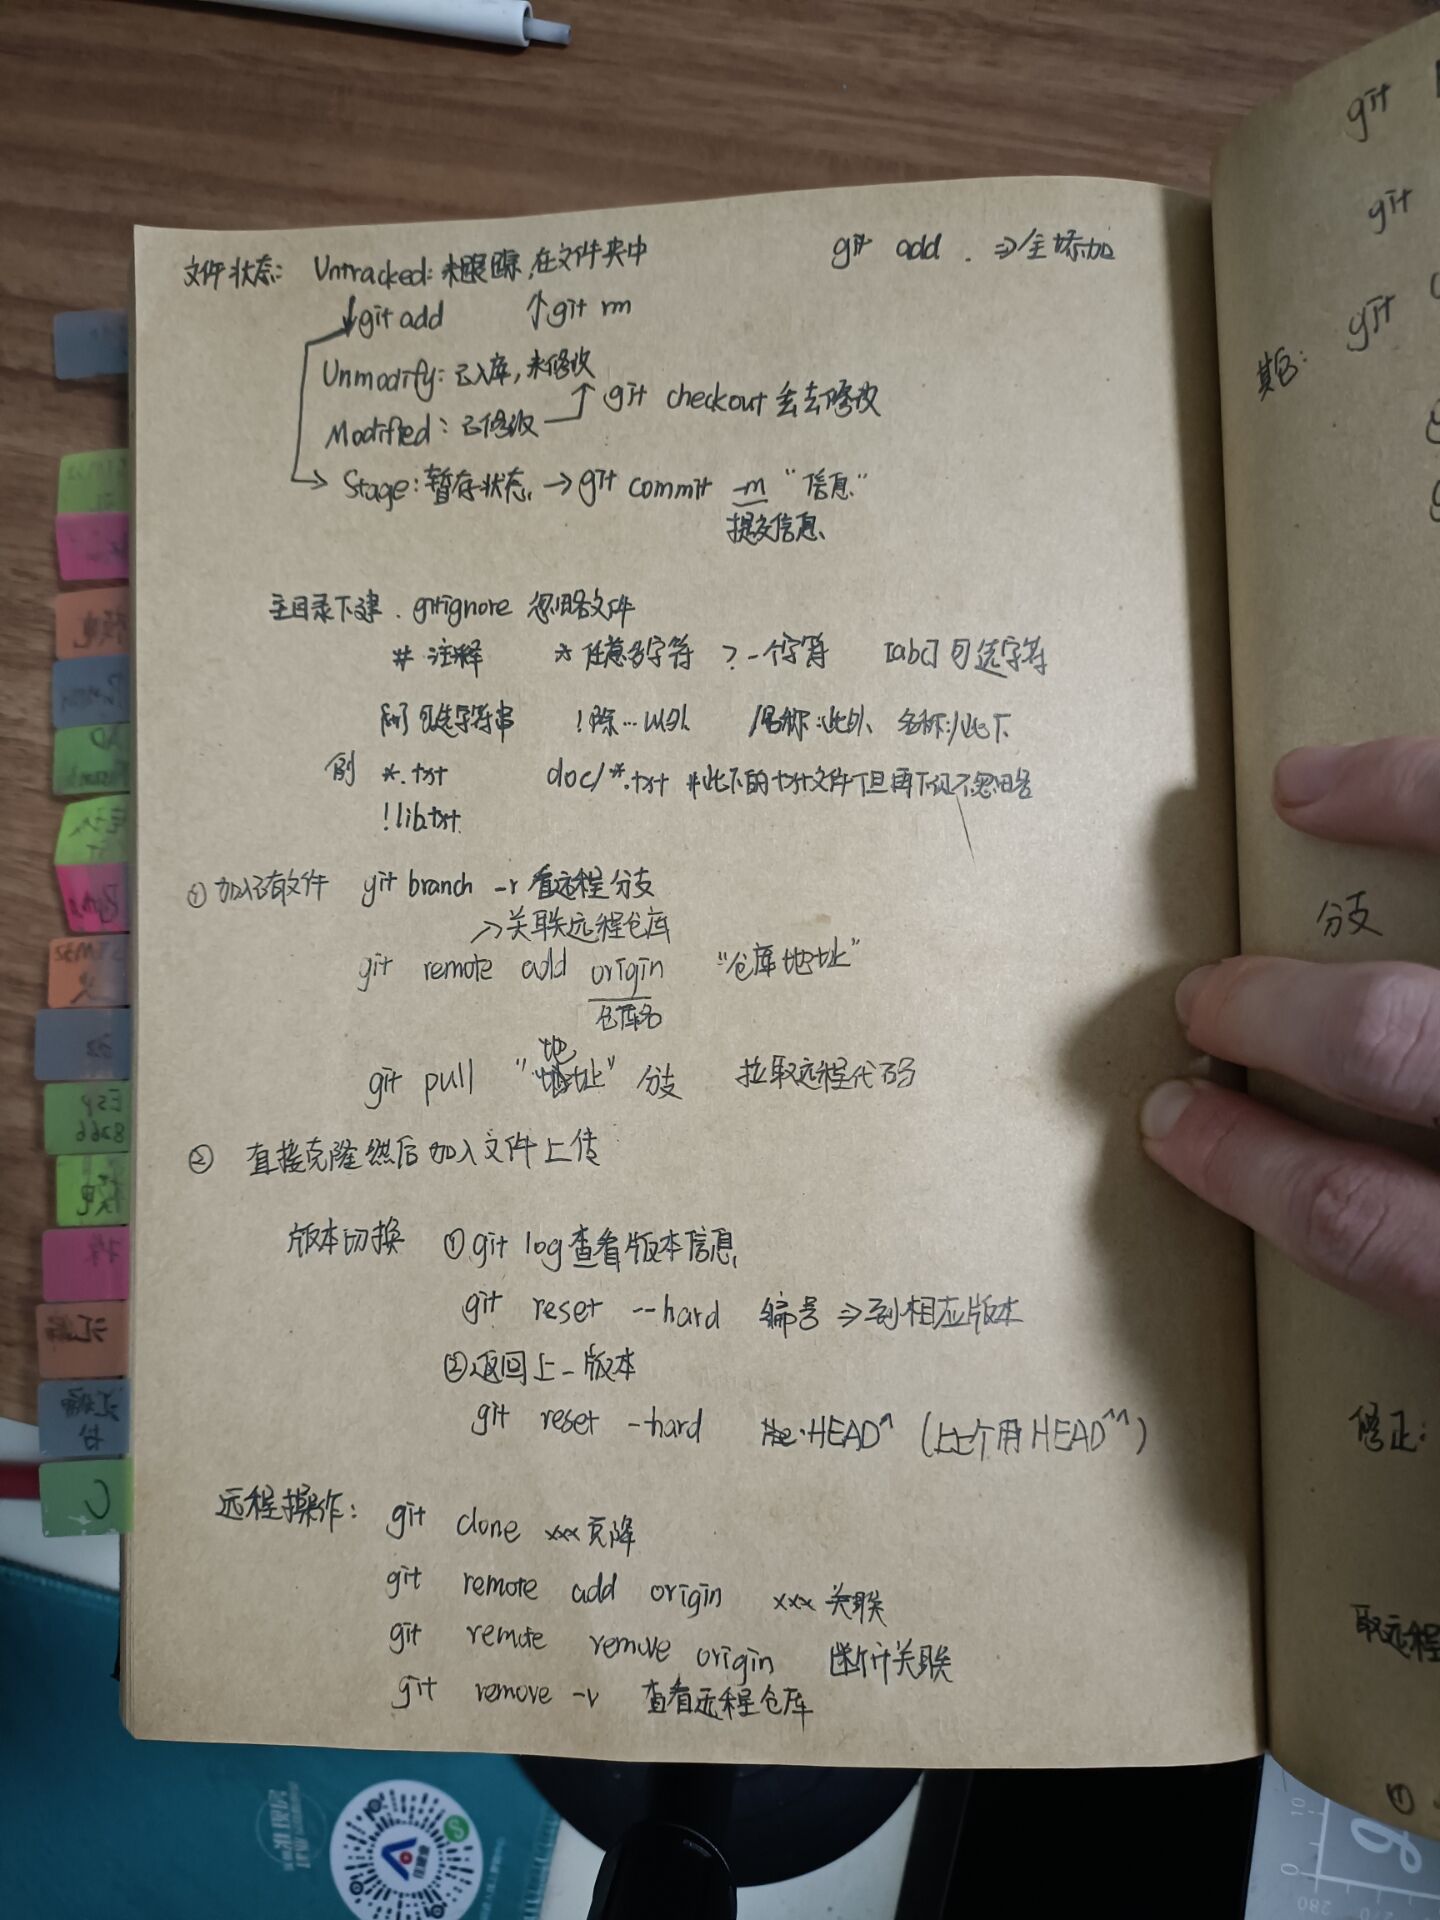 文件状态: Untracked: 未跟踪,在文件夹中 git add . ⇒全添加
↓git add ↑git rm
Unmodify: 已入库,未修改
git checkout 丢去修改
Modified: 已修改
Stage: 暂存状态 → git commit -m "信息"
提交信息
主目录下建 .gitignore 忽略文件
# 注释 * 任意多字符 ? 一个字符 [abc] 可选字符
可选字符串 ! 除…以外 /名称:此外 名称:/此下
例 *.txt doc/*.txt #此下的txt文件但再下级不忽略
!lib.txt
① 加入已有文件 git branch -r 看远程分支
→关联远程仓库
git remote add origin "仓库地址"
仓库名
地
git pull "地址" 分支 拉取远程代码
② 直接克隆然后加入文件上传
版本切换 ① git log 查看版本信息
git reset --hard 编号 ⇒到相应版本
②返回上一版本
git reset -hard HEAD^ (上上个用HEAD^^)
远程操作: git clone xxx 克隆
git remote add origin xxx 关联
git remote remove origin 断开关联
git remove -v 查看远程仓库
git
git
其它: git
分支
修正:
取远程
①
C